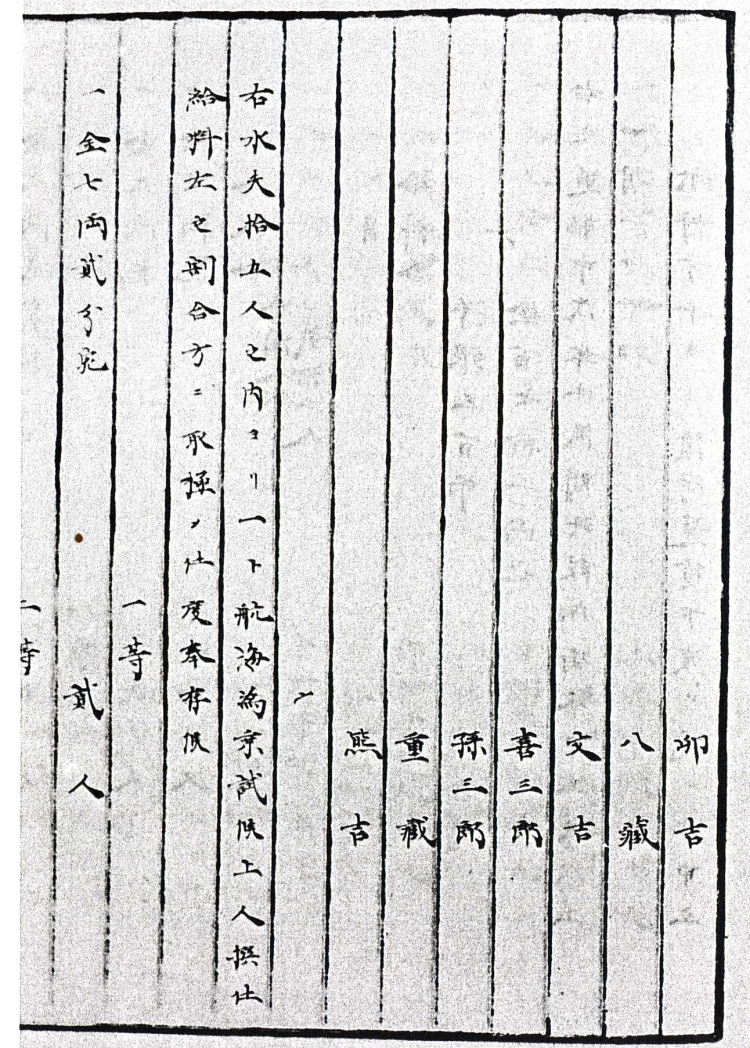 卯吉
八藏
文吉
喜三郎
孫三郎
重藏
熊吉
〆
右水夫拾五人之内ヨリ一ト航海為乗試候上人撰仕
給料左之割合方ニ取極メ仕度奉存候
一等
一金七両貳分宛 貳人
二等